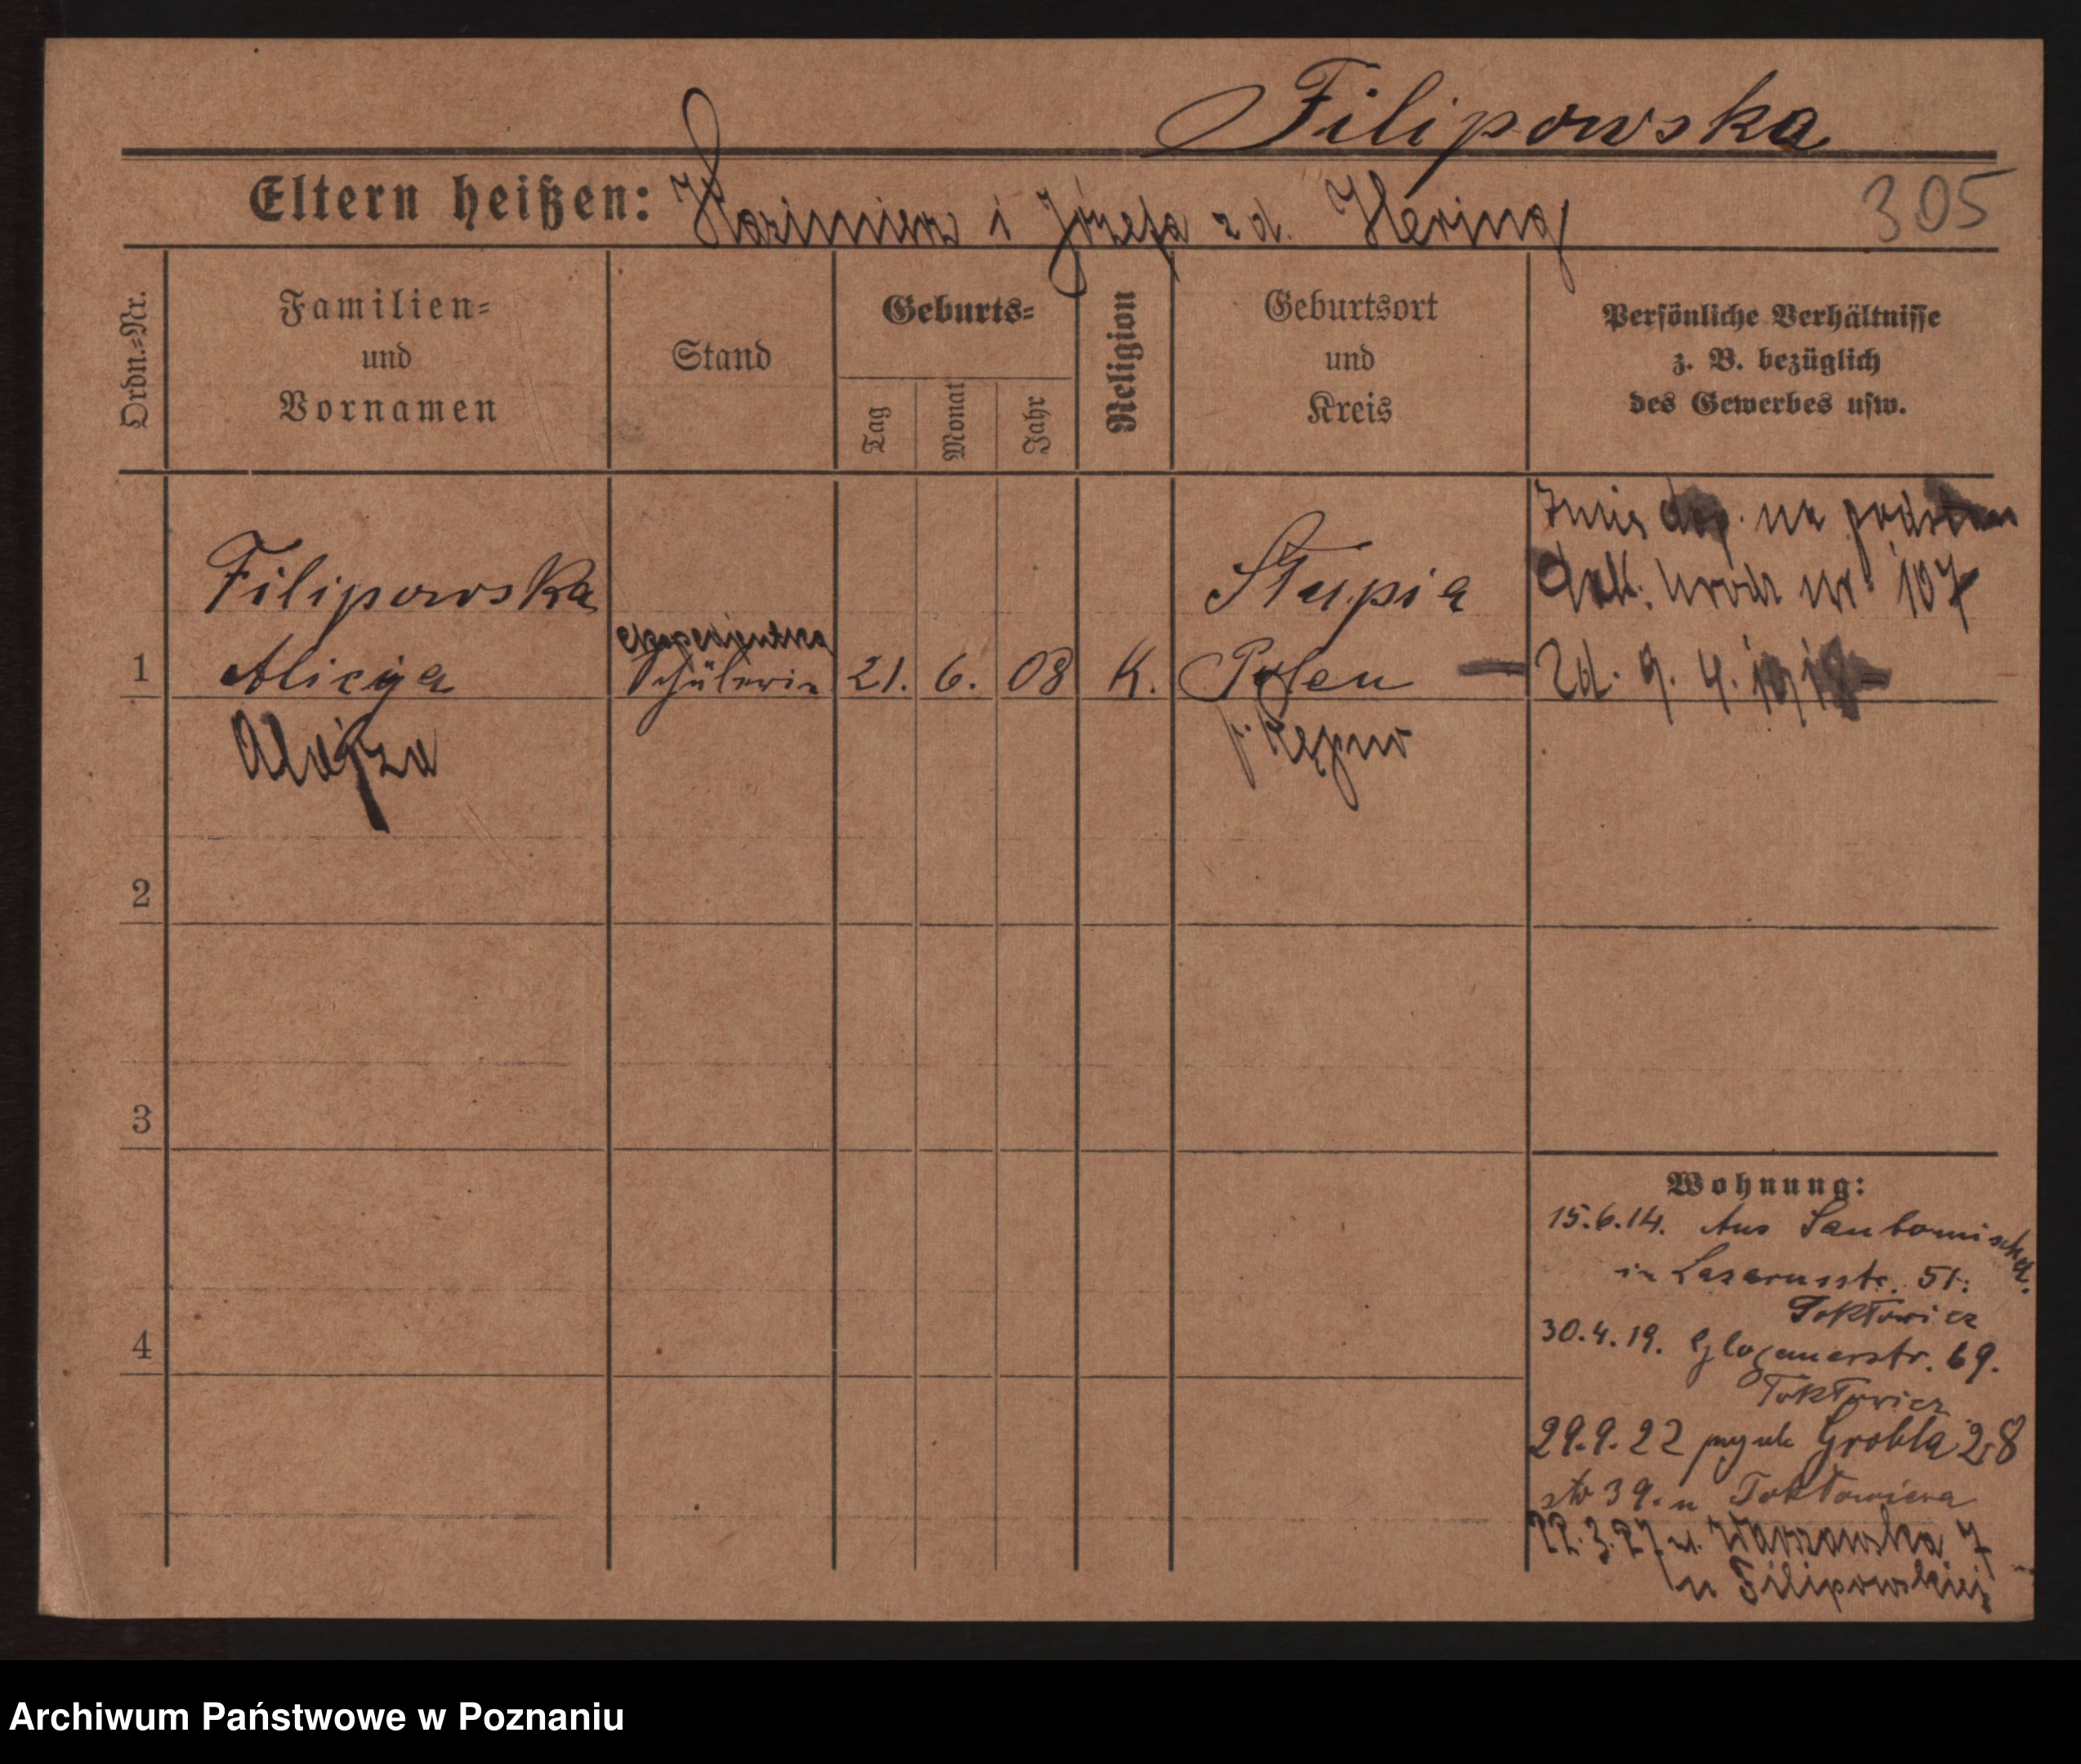 Filipowska
Eltern heißen: Kazimierz i Józefa zd. Hering
305
Ordn.-Nr.
Familien-
und
Vornamen
Stand
Geburts-
Tag
Monat
Jahr
Religion
Geburtsort
und
Kreis
Persönliche Verhältnisse
z. B. bezüglich
des Gewerbes usw.
Filipowska
ekspedjentka
1 Alicya Schülerin 21. 6. 08 K.
Alojza
Słupia
Polen
p. Kępno
Imię dop. na podstaw
urodz nr 107
2
3
4
Wohnung:
15.6.14. Aus
in Lazarusstr. 51.
Tokłowicz
30.4.19. Glogauerstr. 69.
Tokłowicz
29.9.22 Grobla 28
39. u Tokłowicza
22.3.27 ul. Warszawska 7
u Filipowskiej
Archiwum Państwowe w Poznaniu